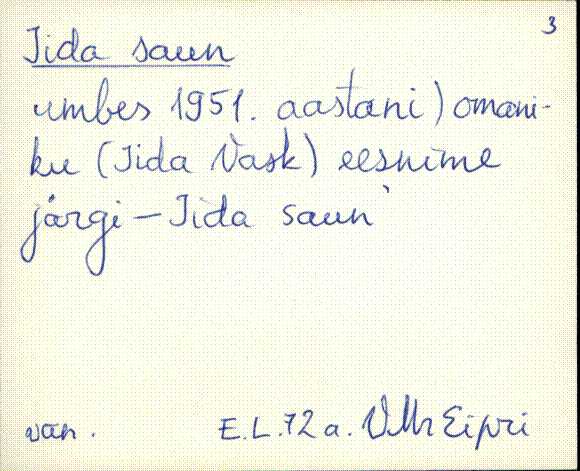 3
Iida saun
umbes 1951. aastani) omani-
ku (Iida Vask) eesnime
järgi - Iida saun
van.
E.L. 72 a.